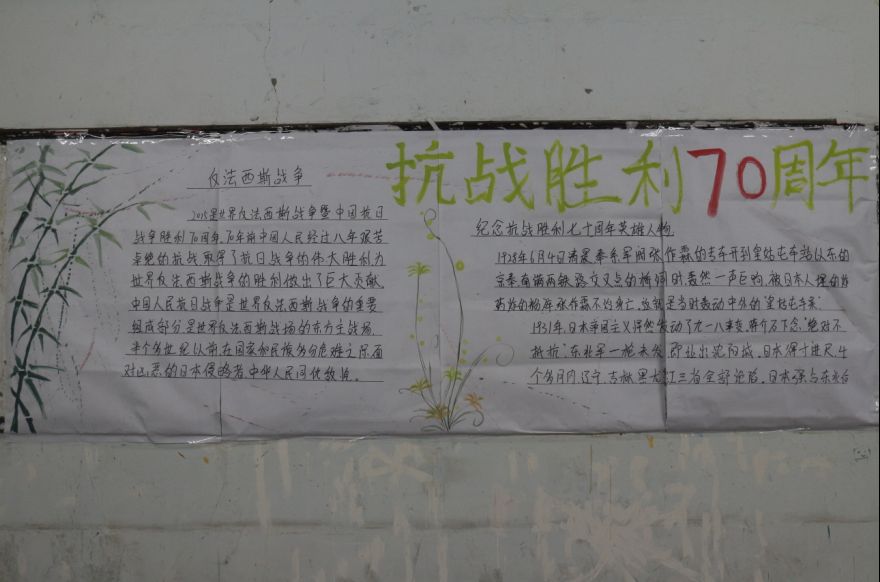 抗战胜利70周年
反法西斯战争
2015是世界反法西斯战争暨中国抗日
战争胜利70周年,70年前中国人民经过八年艰苦
卓绝的抗战取得了抗日战争的伟大胜利为
世界反法西斯战争的胜利做出了巨大贡献.
中国人民抗日战争是世界反法西斯战争的重要
组成部分是世界反法西斯战场的东方主战场.
半个多世纪以前,在国家和民族多分危难之际面
对凶恶的日本侵略者,中华人民同仇敌忾。
纪念抗战胜利七十周年英雄人物
1928年6月4日清晨奉系军阀张作霖的专车开到皇姑屯车站以东的
京奉南满两铁路交叉点的桥洞时轰然一声巨响,被日本人埋的炸
药炸的粉碎,张作霖不灼身亡,这就是当时轰动中外的"皇姑屯事案"
1931年,日本帝国主义悍然发动了九一八事变,蒋介石下令"绝对不
抵抗"东北军一枪未发,即让出沈阳城.日本得寸进尺,4
个多月内,辽宁.吉林.黑龙江三省全部沦陷.日本强占东北台